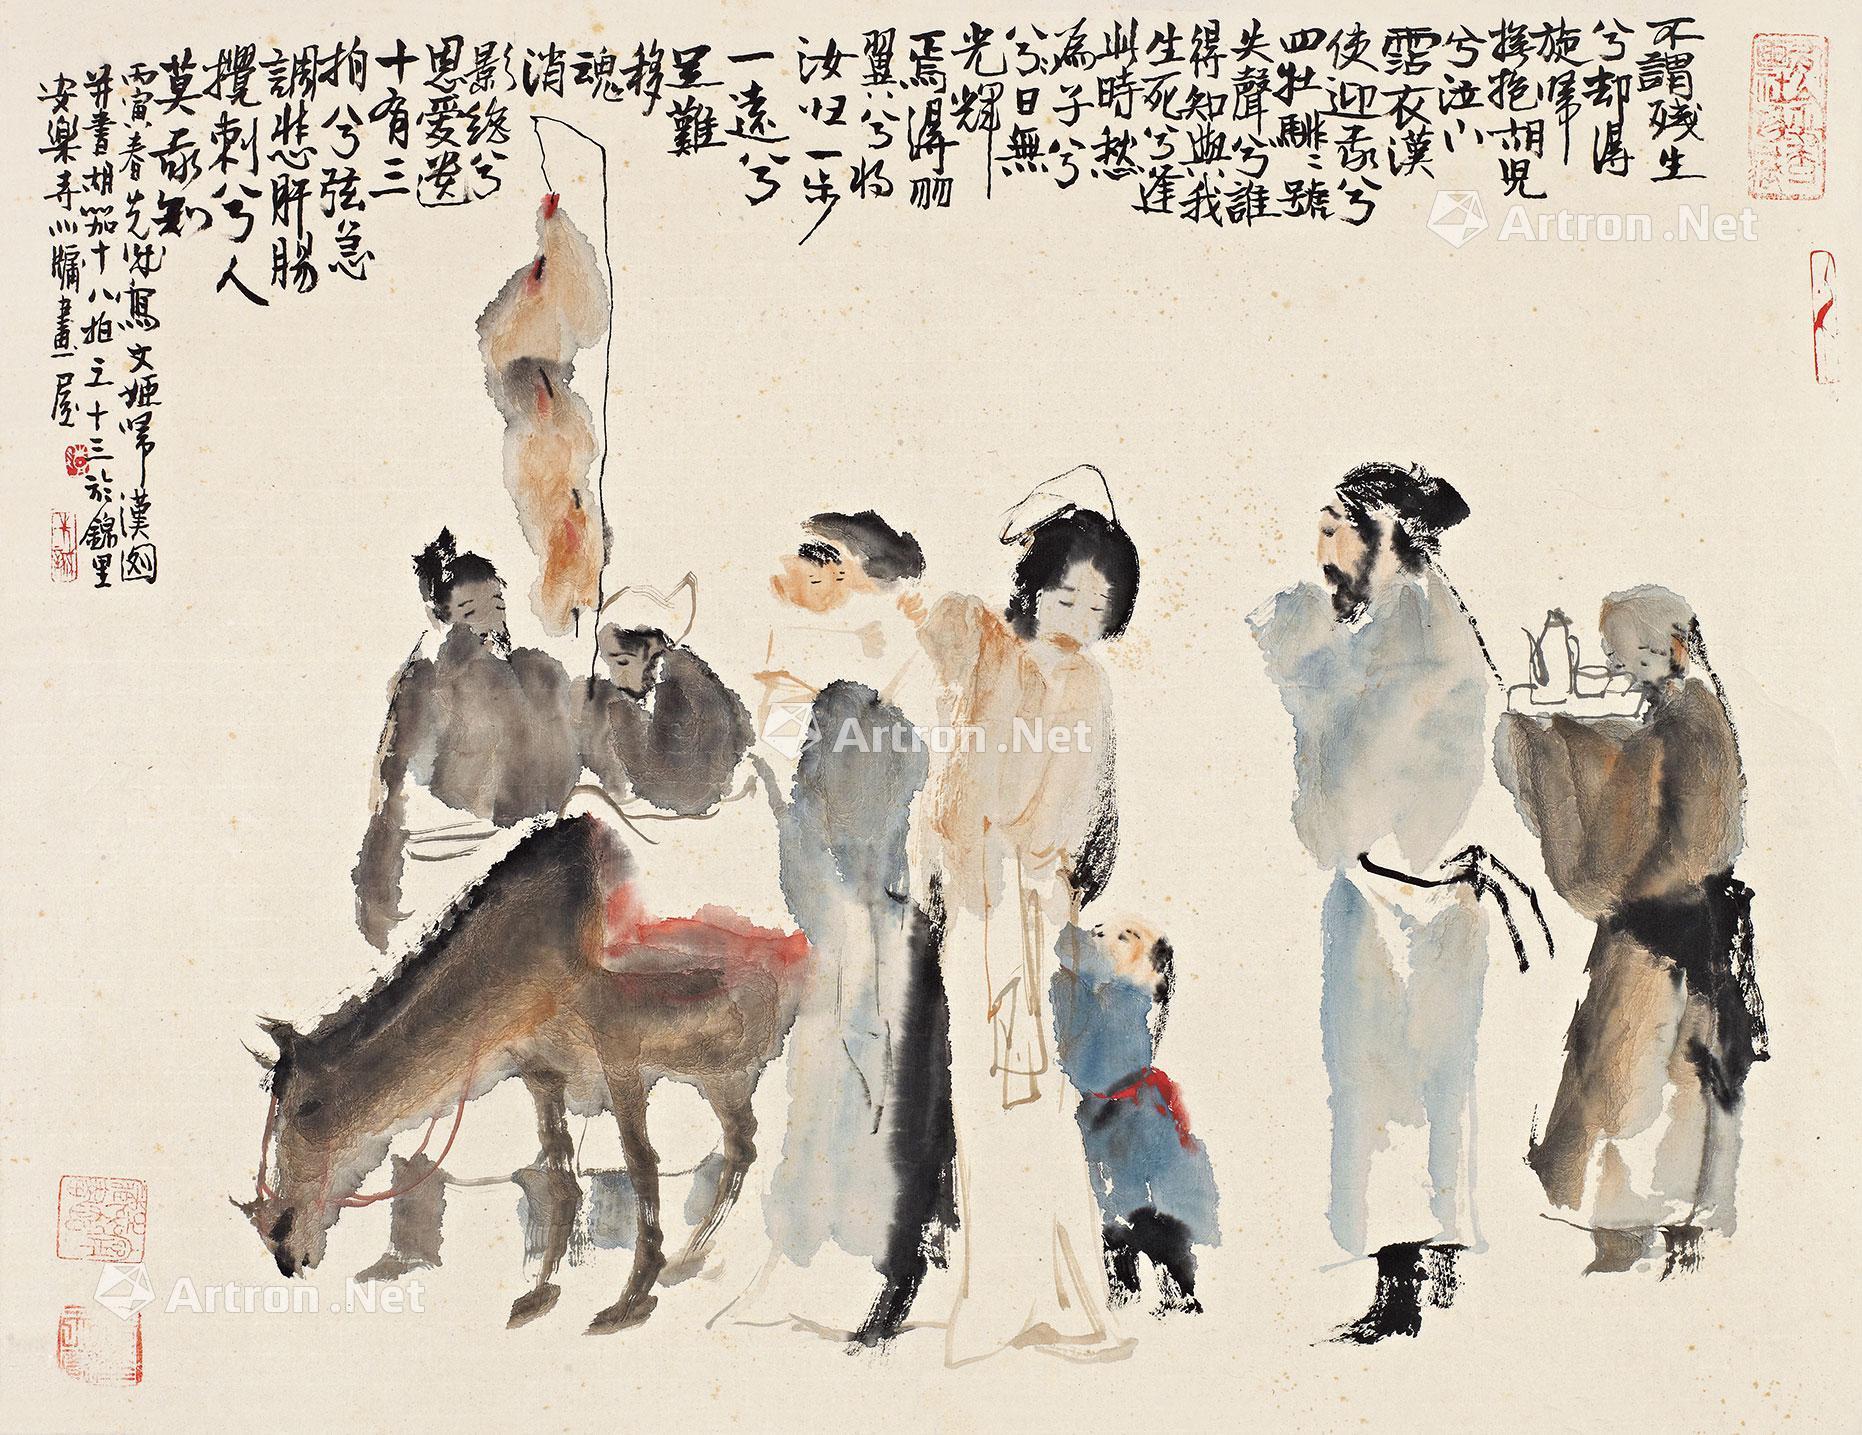 不謂殘生
兮却得
旋歸
撫抱胡兒
兮泣下
霑衣漢
使迎我兮
四牡騑々號
失聲兮誰
得知與我
生死兮逢
此時愁
為子兮
兮日無
光輝
焉得羽
翼兮將
汝归一步
一遠兮
足難
移
魂
消
影絶兮
恩愛遺
十有三
拍兮弦急
調悲肝腸
攪刺兮人
莫我知
丙寅春先 寫文姬歸漢圖
并書胡笳十八拍之十三於錦里
安樂寺 牖畫屋
Artron.Net
Artron.Net
Artron.Net
Artron.Net
Artron.Net